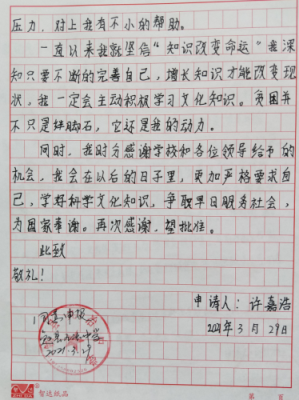 压力，对上我有不小的帮助。
一直以来我就坚信“知识改变命运”我深
知只要不断的完善自己，增长知识才能改变现
状，我一定会主动积极学习文化知识。贫困并
不只是绊脚石，它还是我的动力。
同时，我时分感谢学校和各位领导给予的
机会，我会在以后的日子里，更加严格要求自
己，学好科学文化知识，争取早日服务社会，
为国家奉献。再次感谢，望批准。
此致
敬礼！
申请人：许嘉浩
2021年3月29日
同意申报
2021.3.29
智达纸品
第 页